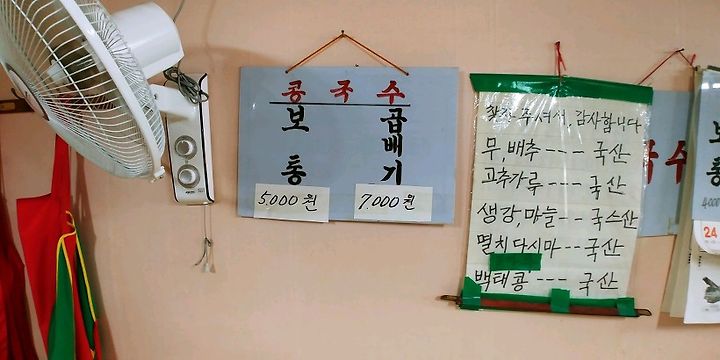 콩국수
보통 곱배기
5,000원 7,000원
찾아 주셔서, 감사합니다
무, 배추 ---- 국산
고추가루 --- 국산
생강, 마늘 -- 국스산
멸치 다시마 --- 국산
백태콩 ---- 국산
국수
보통
4000
24